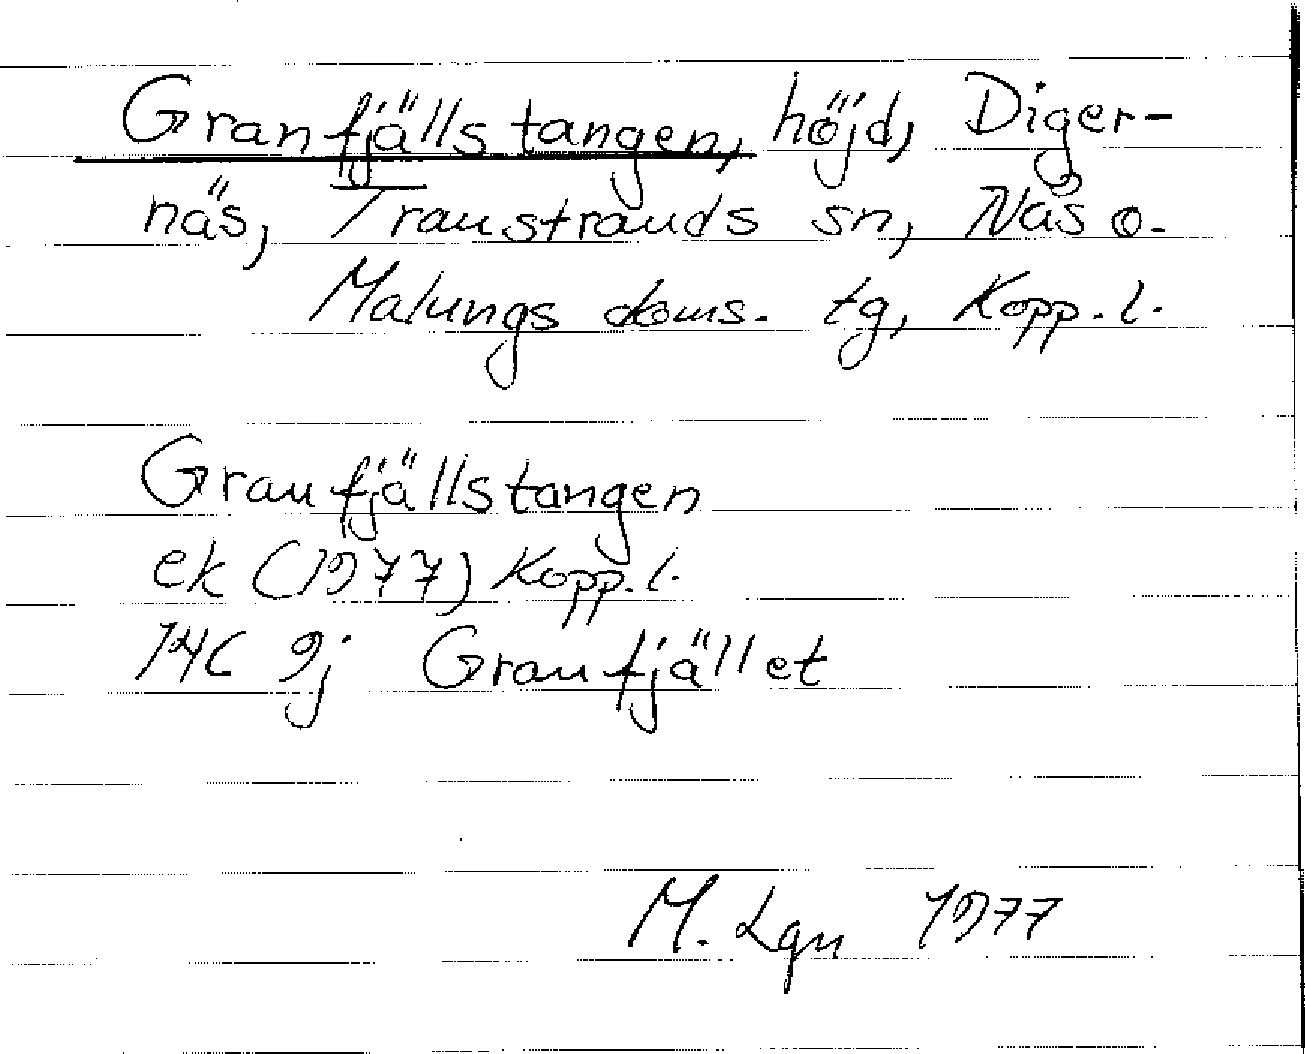 Granfjällstangen, höjd, Diger-
näs, Transtrands sn, Nås o.
Malungs doms. tg, Kopp. l.
Granfjällstangen
ek (1977) Kopp. l.
14C 9j Granfjället
M. Lgn 1977